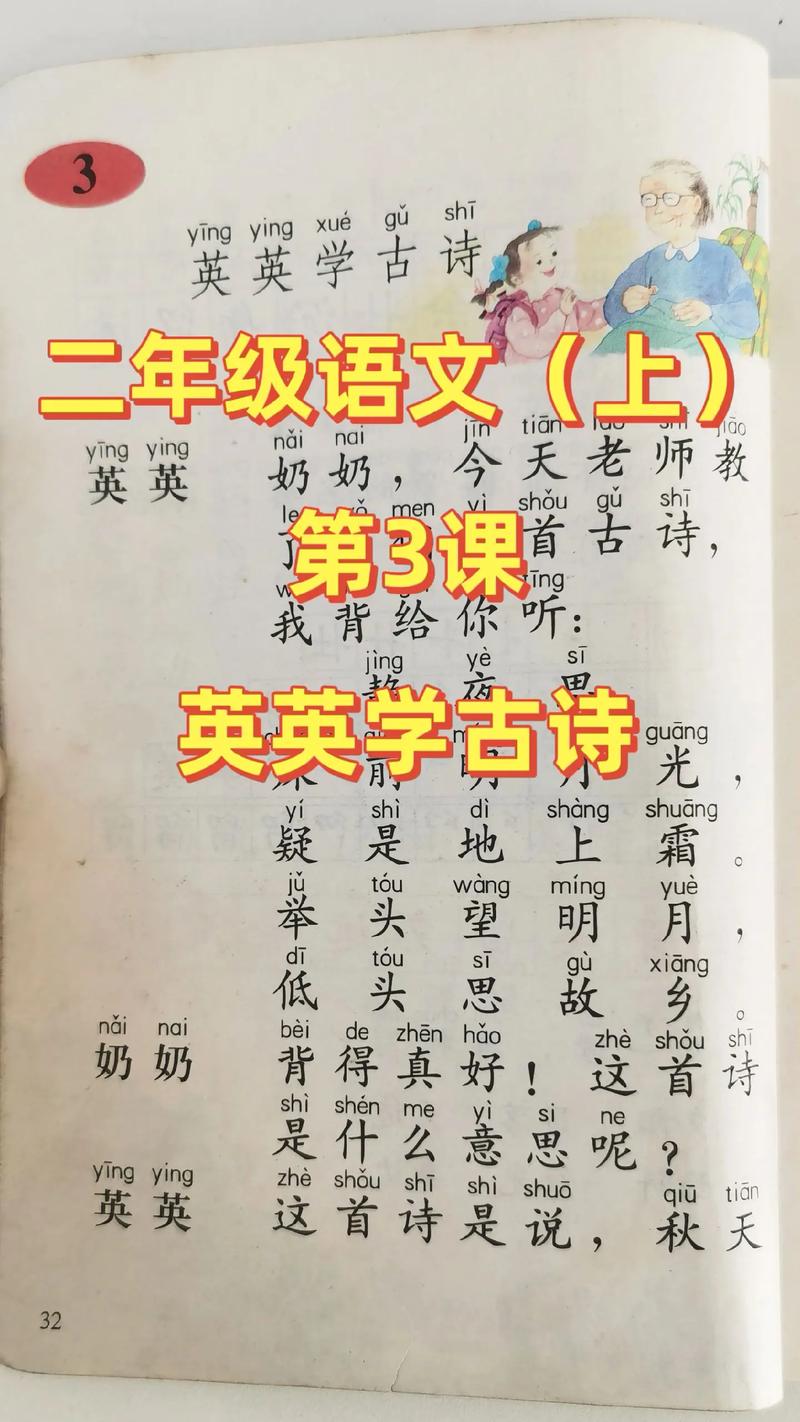 3
yīng ying xué gǔ shī
英英学古诗
二年级语文（上）
yīng ying nǎi nai jīn tiān jiāo
英英 奶奶，今天老师教
le men yì shǒu gǔ shī
了 首古诗，
第3课
tīng
我背给你听：
jìng yè sī
夜思
英英学古诗
guāng
前明月光，
yí shì dì shàng shuāng
疑是地上霜。
jǔ tóu wàng míng yuè
举头望明月，
dī tóu sī gù xiāng
低头思故乡。
nǎi nai bèi de zhēn hǎo zhè shǒu shī
奶奶 背得真好！这首诗
shì shén me yì si ne
是什么意思呢？
yīng ying zhè shǒu shī shì shuō qiū tiān
英英 这首诗是说，秋天
32